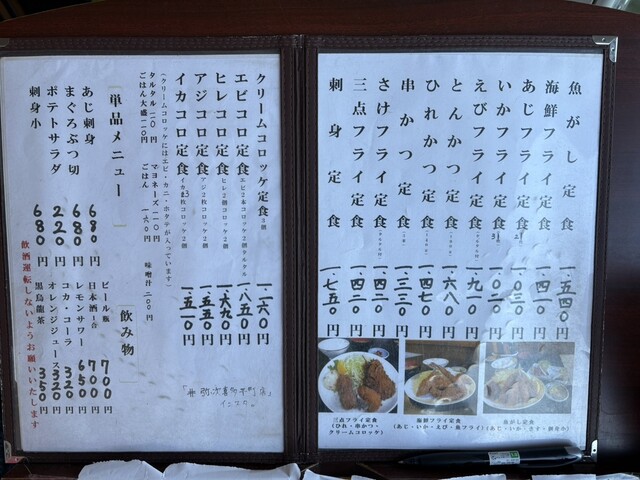 魚がし定食 一、五四〇円
海鮮フライ定食
あじフライ定食 一、〇三〇円
いかフライ定食 一、〇二〇円
えびフライ定食 一、九一〇円
とんかつ定食 一、六八〇円
ひれかつ定食 一、四七〇円
串かつ定食 一、三三〇円
さけフライ定食 一、四二〇円
三点フライ定食 一、四二〇円
刺身定食 一、七五〇円
三点フライ定食
(ひれ・串かつ・
クリームコロッケ)
海鮮フライ定食
(あじ・いか・えび・魚フライ)
魚がし定食
クリームコロッケ定食 3個 一、一六〇円
エビコロ定食 エビ2本コロッケ2個タルタル 一、八五〇円
ヒレコロ定食 ヒレ2個コロッケ2個 一、六九〇円
アジコロ定食 アジ2枚コロッケ2個 一、五五〇円
イカコロ定食 コロッケ2個 一、五一〇円
(クリームコロッケにはエビ・カニ・ホタテが入っています)
タルタル 一一〇円 マヨネーズ 一一〇円 味噌汁 二〇〇円
ごはん大盛 二〇円 ごはん 一六〇円
単品メニュー
あじ刺身 680円
まぐろぶつ切 680円
ポテトサラダ 220円
刺身小 680円
飲み物
ビール瓶 700円
日本酒1合 700円
レモンサワー 650円
コカ・コーラ 320円
オレンジジュース 320円
黒烏龍茶 350円
飲酒運転しないようお願いいたします